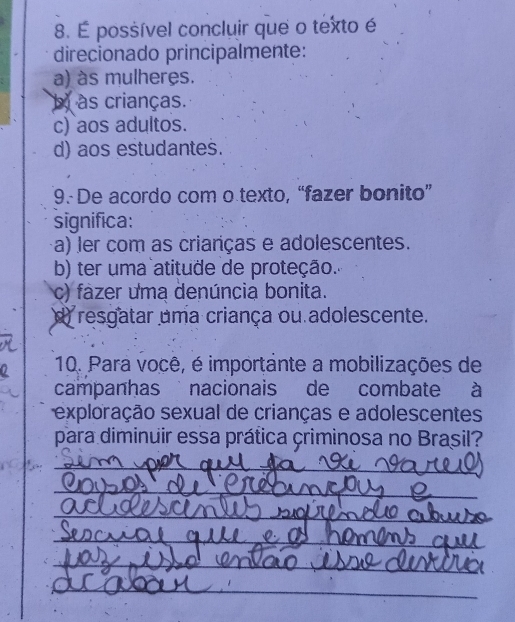 8. É possível concluir que o texto é
direcionado principalmente:
a) às mulheres.
b) às crianças.
c) aos adultos.
d) aos estudantes.
9. De acordo com o texto, “fazer bonito”
significa:
a) ler com as crianças e adolescentes.
b) ter uma atitude de proteção.
c) fazer uma denúncia bonita.
d) resgatar uma criança ou adolescente.
10. Para você, é importante a mobilizações de
campanhas nacionais de combate à
exploração sexual de crianças e adolescentes
para diminuir essa prática criminosa no Brasil?
Sim por que ja vi vareos
casos de creancas e
adolescentes sofrendo abuso
Sescual que e os homens que
faz isso então isso deveria
acabar